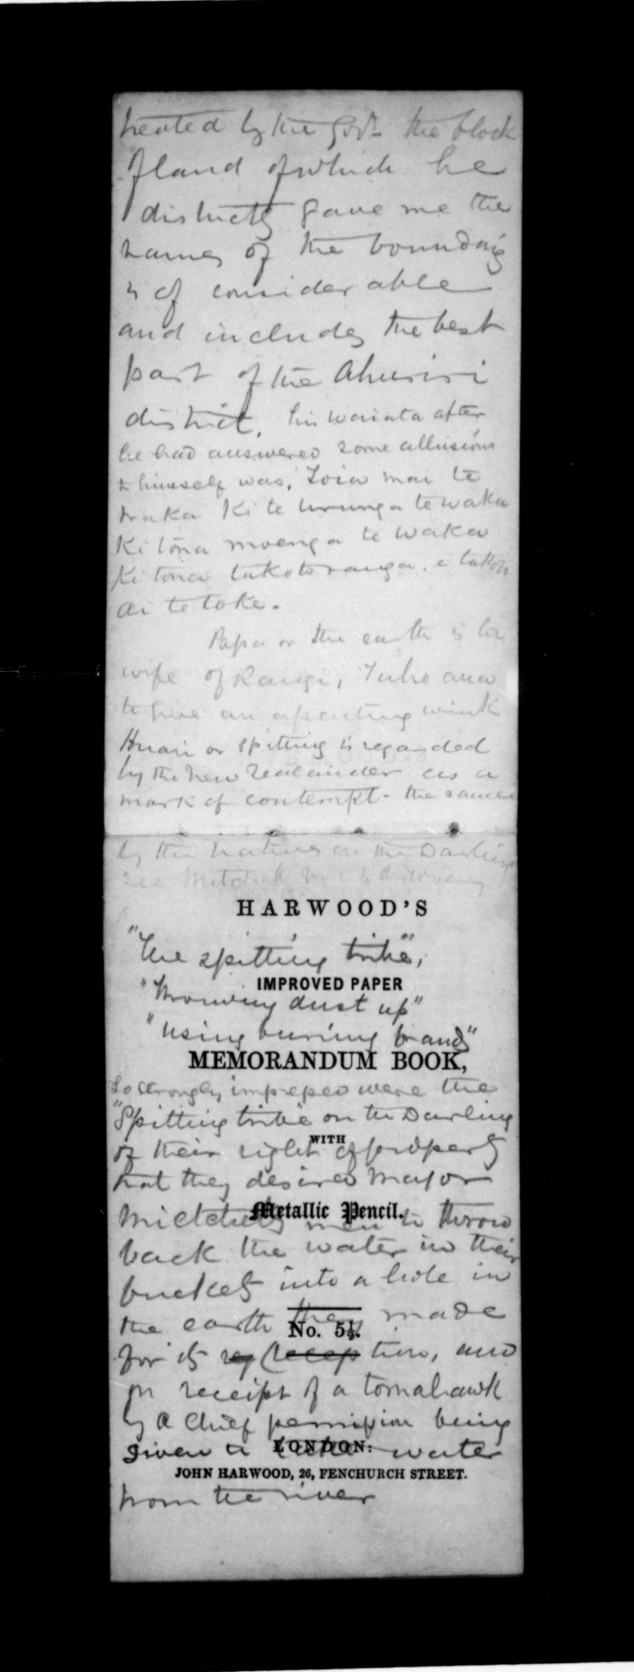 treated by the Govt the block
of land of which he
districts gave me the
names of the boundary
is of considerable
and includes the best
part of the Ahuriri
district. his waiata after
he had answered some allusions
to himself was, Toia mai te
waka ki te urunga te waka
ki tona moenga te waka
ki tona takotoranga. e takoto
ai te toke.
Papa or the earth is the
wife of Rangi,
to give an wink
Huari or spitting is regarded
by the New Zealander as a
mark of contempt - the same
by the natives on the Darling
see
HARWOOD'S
"The spitting tribe",
IMPROVED PAPER
"Throwing dust up"
"using burning brands"
MEMORANDUM BOOK,
So strongly impressed were the
"Spitting tribe on the Darling
WITH
of their right of property
that they desired Major
Metallic Pencil.
Mitchell's men to throw
back the water in their
buckets into a hole in
the earth they made
No. 5½.
for its reception, and
on receipt of a tomahawk
by a chief permission being
given to take water
LONDON:
JOHN HARWOOD, 26, FENCHURCH STREET.
from the river